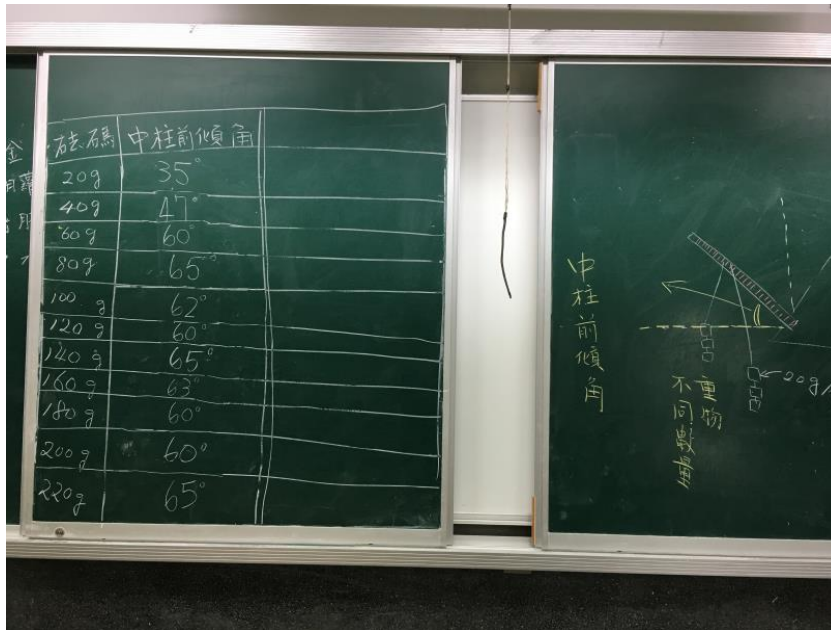 砝碼 中柱前傾角
20g 35°
40g 47°
60g 60°
80g 65°
100g 62°
120g 60°
140g 65°
160g 63°
180g 60°
200g 60°
220g 65°
中柱前傾角
重物
不同數量
20g/
金
用藥